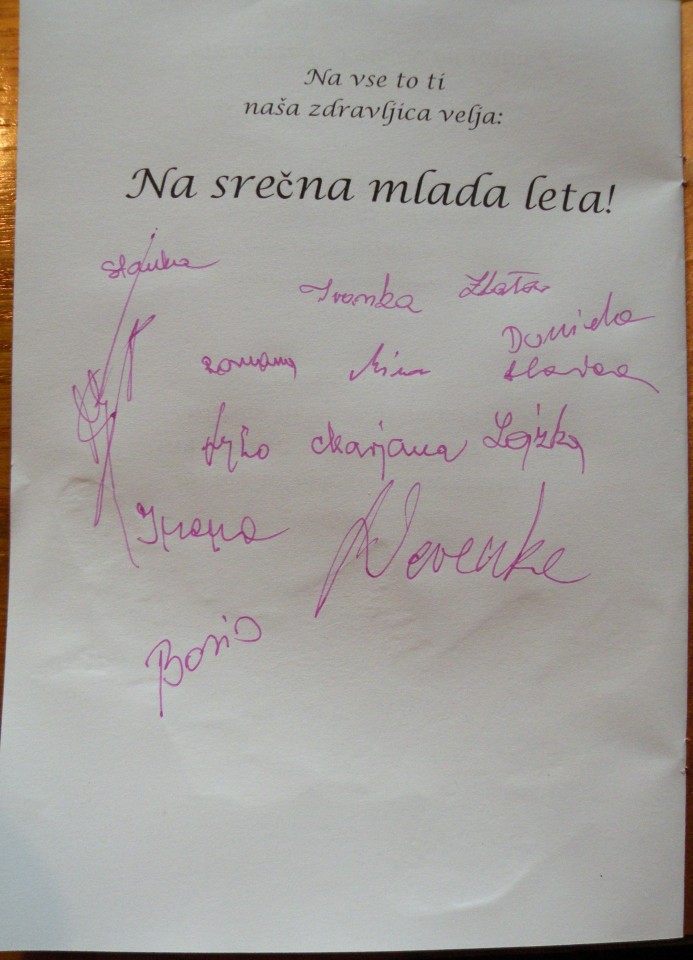 Na vse to ti
naša zdravljica velja:
Na srečna mlada leta!
Slavka
Ivanka Zlata
Daniela
Romana Mira Slavica
Marjana Lojzka
Ivana Nevenka
Boris